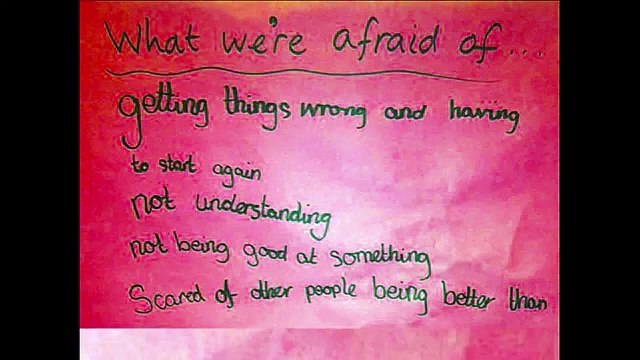 What we're afraid of...
getting things wrong and having
to start again
not understanding
not being good at something
Scared of other people being better than